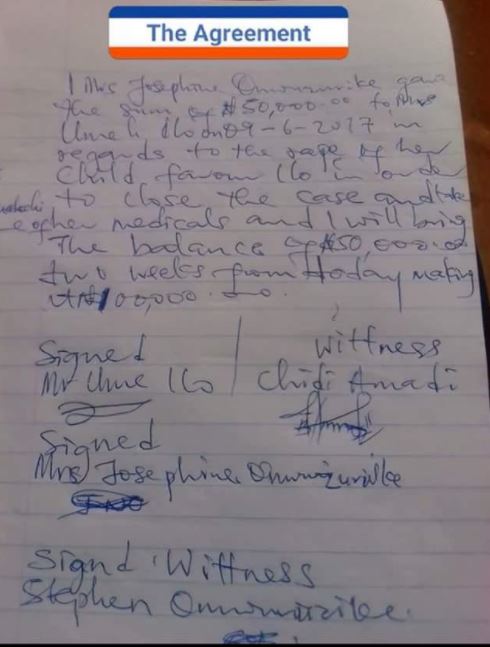 The Agreement
I Mrs Josephine Onwuzurike gave
the sum of ₦50,000.00 to Mrs
Ume Ilo on 09-6-2017 in
regards to the rape of her
child favour Ilo in order
to close the case and take
care of her medicals and I will bring
The balance of ₦50,000.00
two weeks from today making
it ₦100,000.00.
Signed
Mr Ume Ilo
Wittness
Chidi Amadi
Signed
Mrs Josephine Onwuzurike
Signd Wittness
Stephen Onwuzurike.